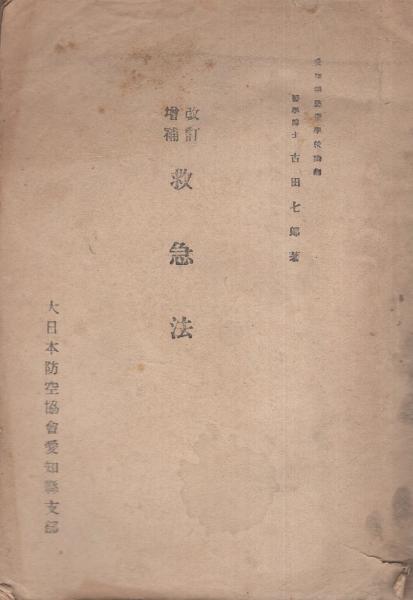 愛知縣警察學校講師
醫學博士 古田七郎著
改訂
增補
救急法
大日本防空協會愛知縣支部